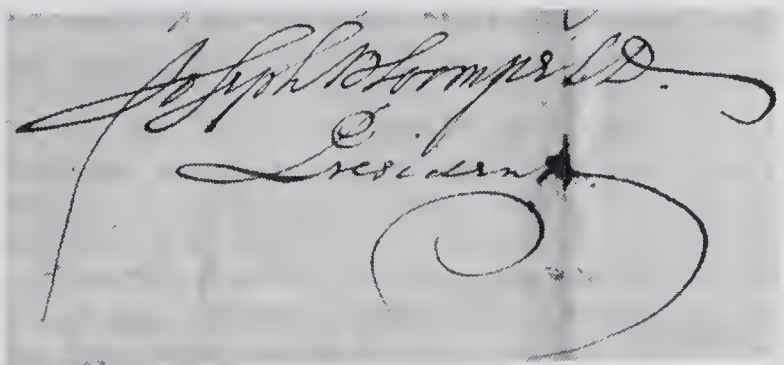 Joseph Bloomfield.
President.